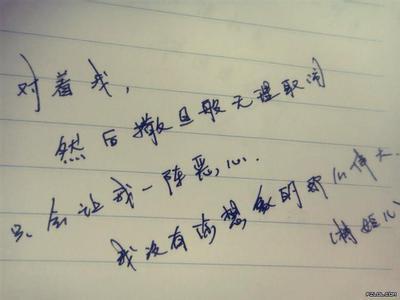 对着我，
然后撒旦般无理取闹
只会让我一阵恶心.
我没有你想象的那么伟大.
PZLOL.COM